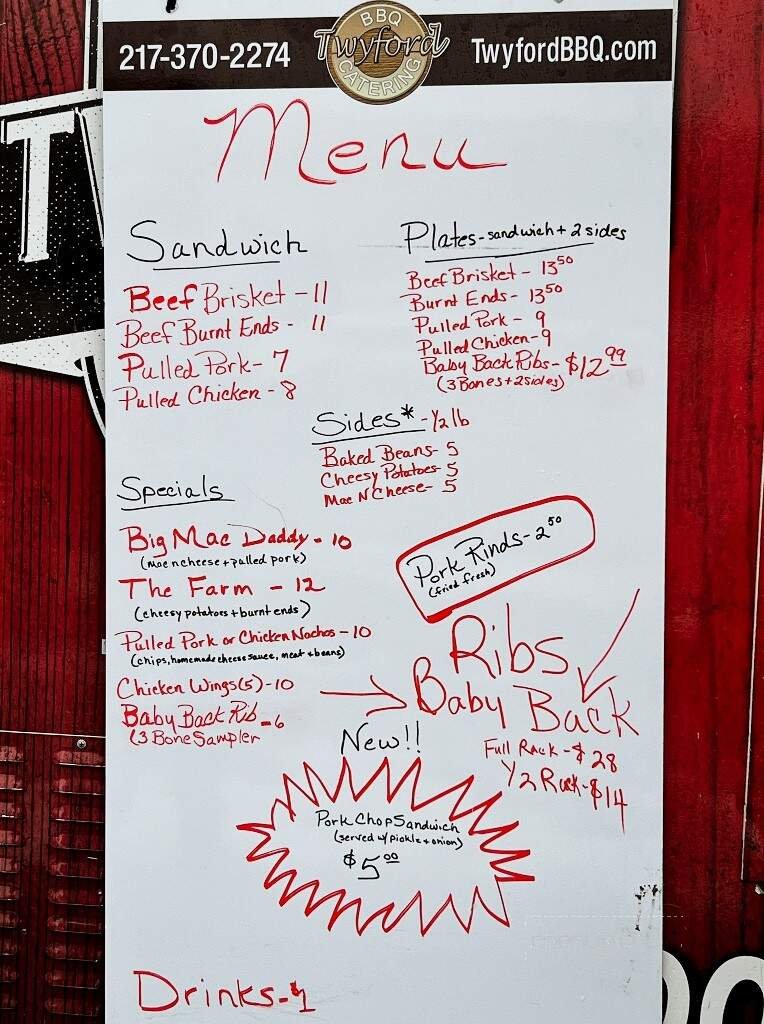 217-370-2274
BBQ
Twyford
CATERING
TwyfordBBQ.com
Menu
Sandwich
Beef Brisket - 11
Beef Burnt Ends - 11
Pulled Pork - 7
Pulled Chicken - 8
Plates - sandwich + 2 sides
Beef Brisket - 13 50
Burnt Ends - 13 50
Pulled Pork - 9
Pulled Chicken - 9
Baby Back Ribs - $12 99
(3 Bones + 2 sides)
Sides* - 1/2 lb
Baked Beans - 5
Cheesy Potatoes - 5
Mac N Cheese - 5
Specials
Big Mac Daddy - 10
(mac n cheese + pulled pork)
The Farm - 12
(cheesy potatoes + burnt ends)
Pulled Pork or Chicken Nachos - 10
(chips, homemade cheese sauce, meat + beans)
Chicken Wings (5) - 10
Baby Back Rib - 6
(3 Bone Sampler
Pork Rinds - 2 50
(fried fresh)
Ribs
Baby Back
Full Rack - $28
1/2 Rack - $14
New!!
Pork Chop Sandwich
(served w/ pickle + onion)
$5 00
Drinks - $1